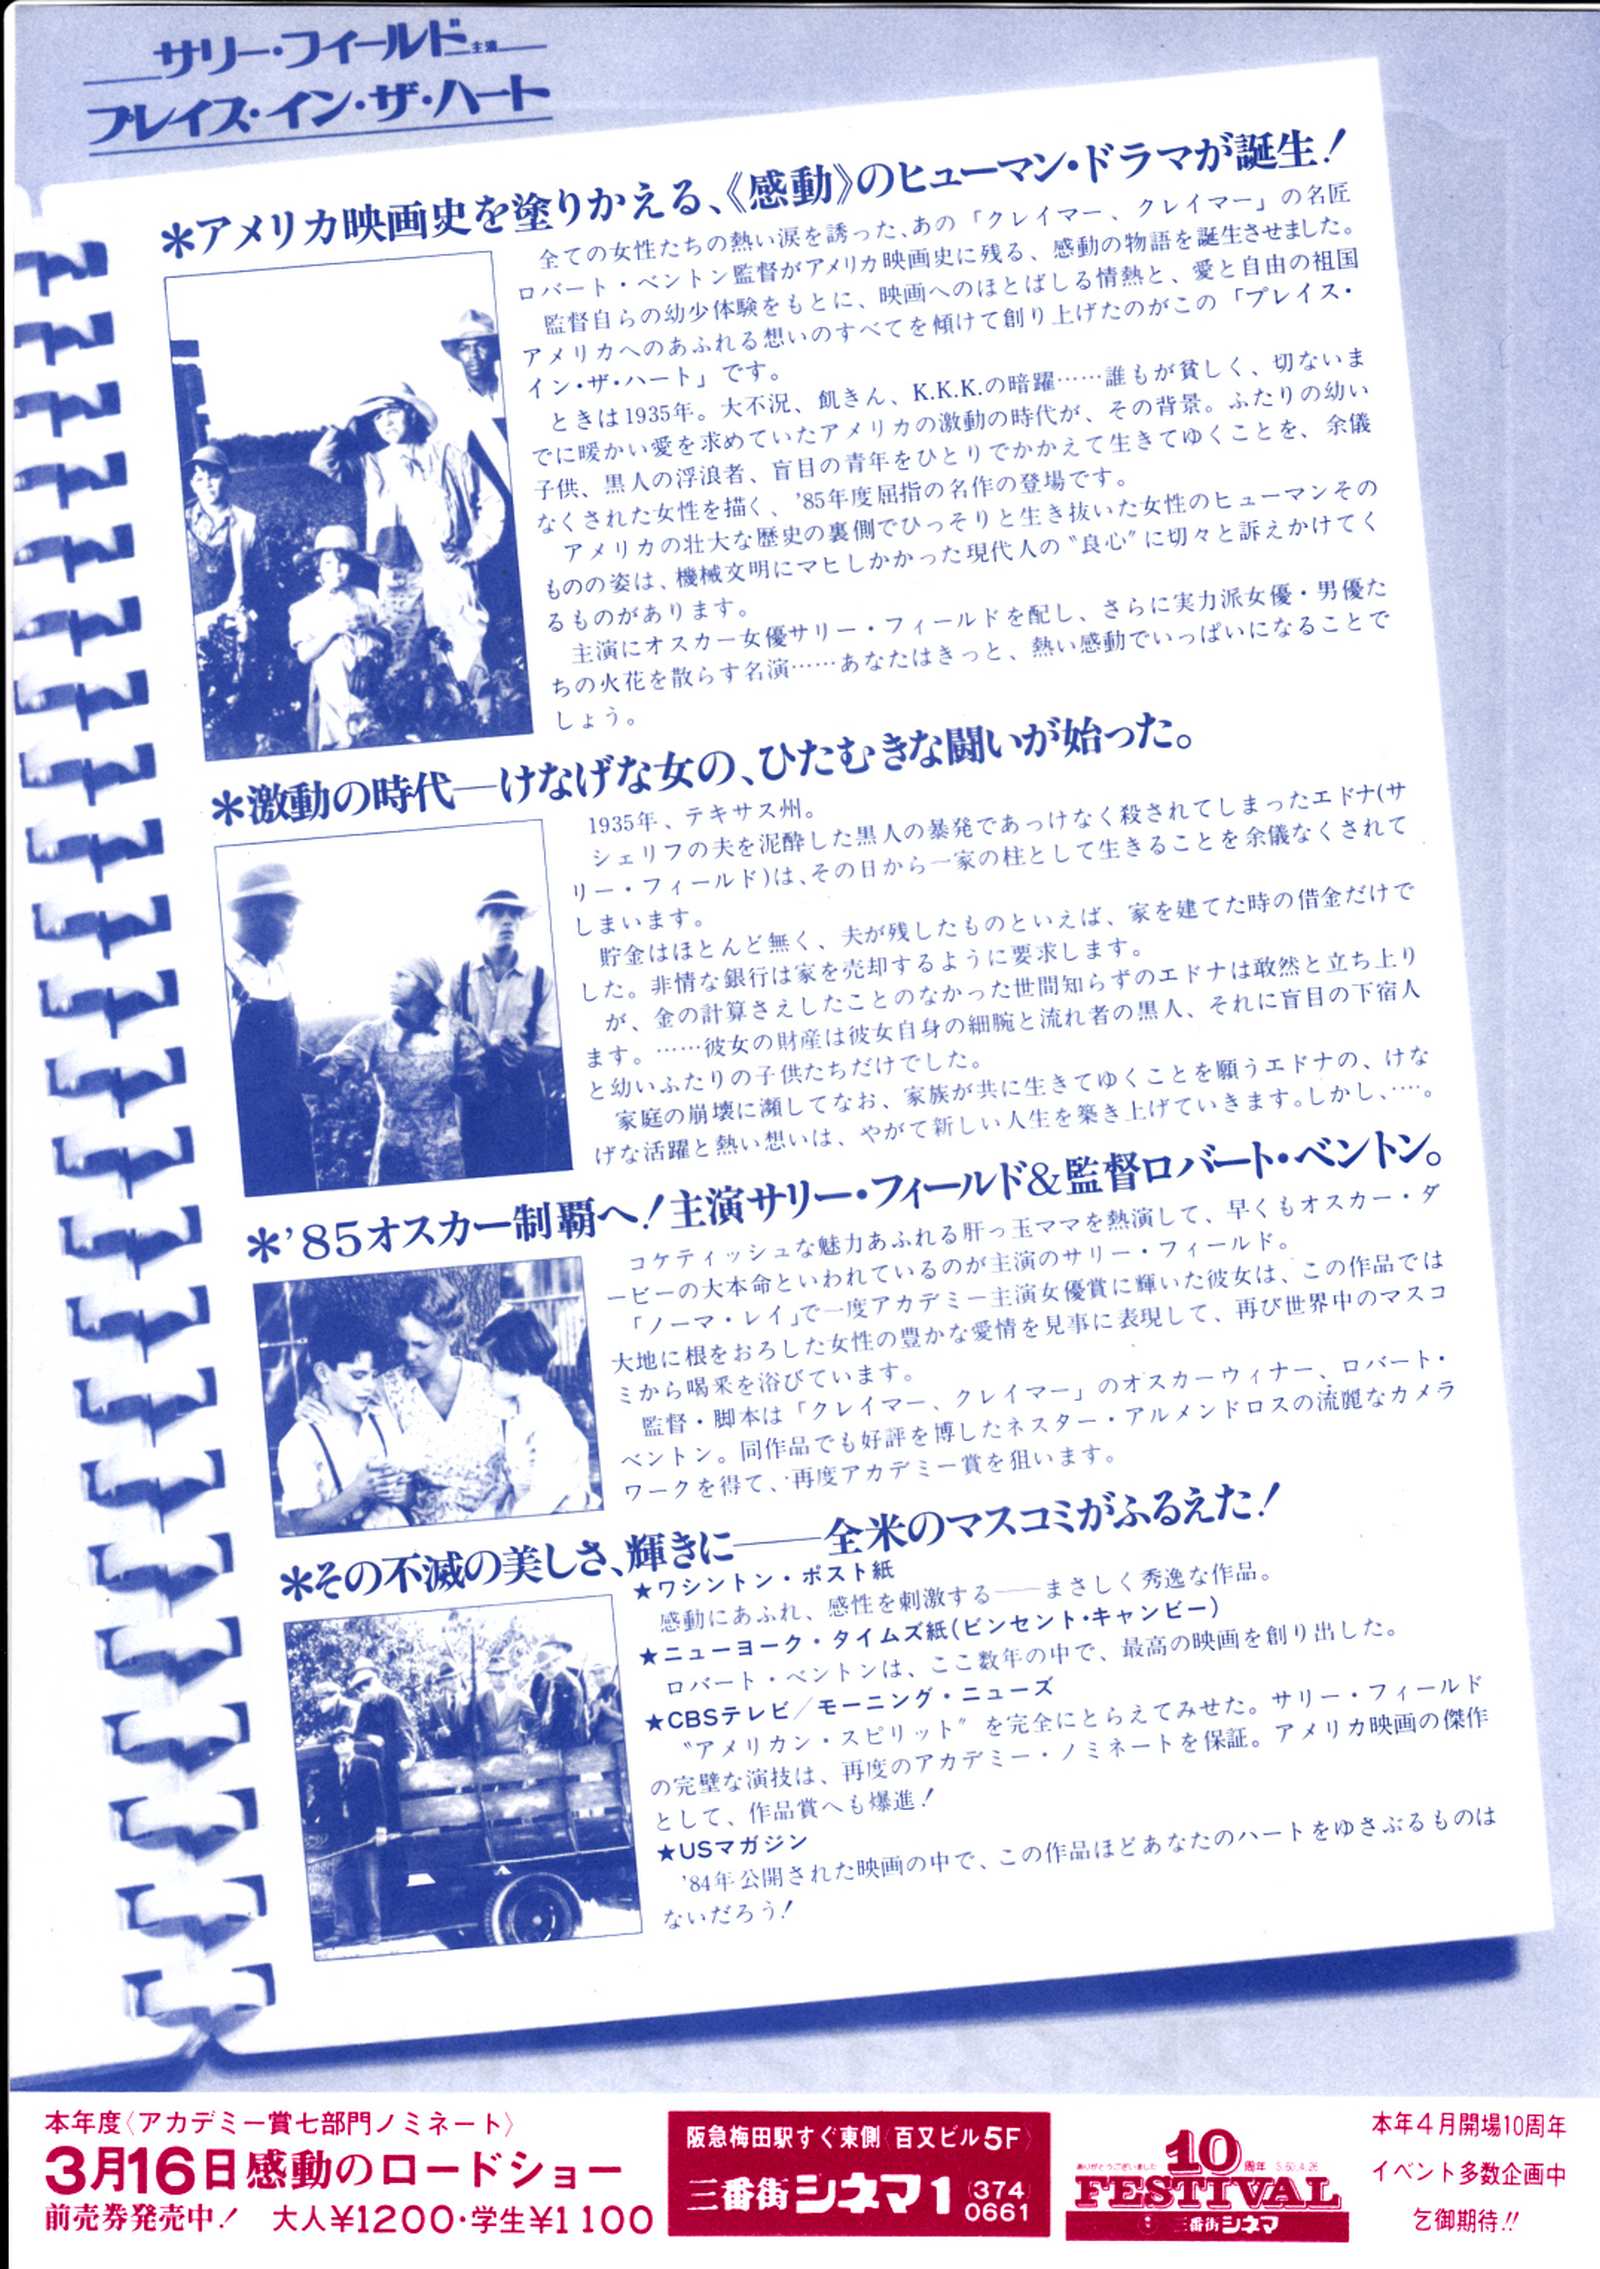 サリー・フィールド主演
プレイス・イン・ザ・ハート
＊アメリカ映画史を塗りかえる、《感動》のヒューマン・ドラマが誕生！
全ての女性たちの熱い涙を誘った、あの「クレイマー、クレイマー」の名匠
ロバート・ベントン監督がアメリカ映画史に残る、感動の物語を誕生させました。
監督自らの幼少体験をもとに、映画へのほとばしる情熱と、愛と自由の祖国
アメリカへのあふれる想いのすべてを傾けて創り上げたのがこの「プレイス・
イン・ザ・ハート」です。
ときは1935年。大不況、飢きん、K.K.K.の暗躍……誰もが貧しく、切ないま
でに暖かい愛を求めていたアメリカの激動の時代が、その背景。ふたりの幼い
子供、黒人の浮浪者、盲目の青年をひとりでかかえて生きてゆくことを、余儀
なくされた女性を描く、'85年度屈指の名作の登場です。
アメリカの壮大な歴史の裏側でひっそりと生き抜いた女性のヒューマンその
ものの姿は、機械文明にマヒしかかった現代人の〝良心〟に切々と訴えかけてく
るものがあります。
主演にオスカー女優サリー・フィールドを配し、さらに実力派女優・男優た
ちの火花を散らす名演……あなたはきっと、熱い感動でいっぱいになることで
しょう。
＊激動の時代―けなげな女の、ひたむきな闘いが始った。
1935年、テキサス州。
シェリフの夫を泥酔した黒人の暴発であっけなく殺されてしまったエドナ(サ
リー・フィールド)は、その日から一家の柱として生きることを余儀なくされて
しまいます。
貯金はほとんど無く、夫が残したものといえば、家を建てた時の借金だけで
した。非情な銀行は家を売却するように要求します。
が、金の計算さえしたことのなかった世間知らずのエドナは敢然と立ち上り
ます。……彼女の財産は彼女自身の細腕と流れ者の黒人、それに盲目の下宿人
と幼いふたりの子供たちだけでした。
家庭の崩壊に瀕してなお、家族が共に生きてゆくことを願うエドナの、けな
げな活躍と熱い想いは、やがて新しい人生を築き上げていきます。しかし、…。
＊'85オスカー制覇へ！主演サリー・フィールド&監督ロバート・ベントン。
コケティッシュな魅力あふれる肝っ玉ママを熱演して、早くもオスカー・ダ
ービーの大本命といわれているのが主演のサリー・フィールド。
「ノーマ・レイ」で一度アカデミー主演女優賞に輝いた彼女は、この作品では
大地に根をおろした女性の豊かな愛情を見事に表現して、再び世界中のマスコ
ミから喝采を浴びています。
監督・脚本は「クレイマー、クレイマー」のオスカーウィナー、ロバート・
ベントン。同作品でも好評を博したネスター・アルメンドロスの流麗なカメラ
ワークを得て、再度アカデミー賞を狙います。
＊その不滅の美しさ、輝きに――全米のマスコミがふるえた！
★ワシントン・ポスト紙
感動にあふれ、感性を刺激する――まさしく秀逸な作品。
★ニューヨーク・タイムズ紙(ビンセント・キャンビー)
ロバート・ベントンは、ここ数年の中で、最高の映画を創り出した。
★CBSテレビ／モーニング・ニューズ
〝アメリカン・スピリット〟を完全にとらえてみせた。サリー・フィールド
の完璧な演技は、再度のアカデミー・ノミネートを保証。アメリカ映画の傑作
として、作品賞へも爆進！
★USマガジン
'84年公開された映画の中で、この作品ほどあなたのハートをゆさぶるものは
ないだろう！
本年度〈アカデミー賞七部門ノミネート〉
3月16日感動のロードショー
前売券発売中！ 大人¥1200・学生¥1100
阪急梅田駅すぐ東側〈百又ビル5F〉
三番街シネマ1 (374)0661
ありがとうございました 10周年 S.50.4.26
FESTIVAL
三番街シネマ
本年4月開場10周年
イベント多数企画中
乞御期待!!